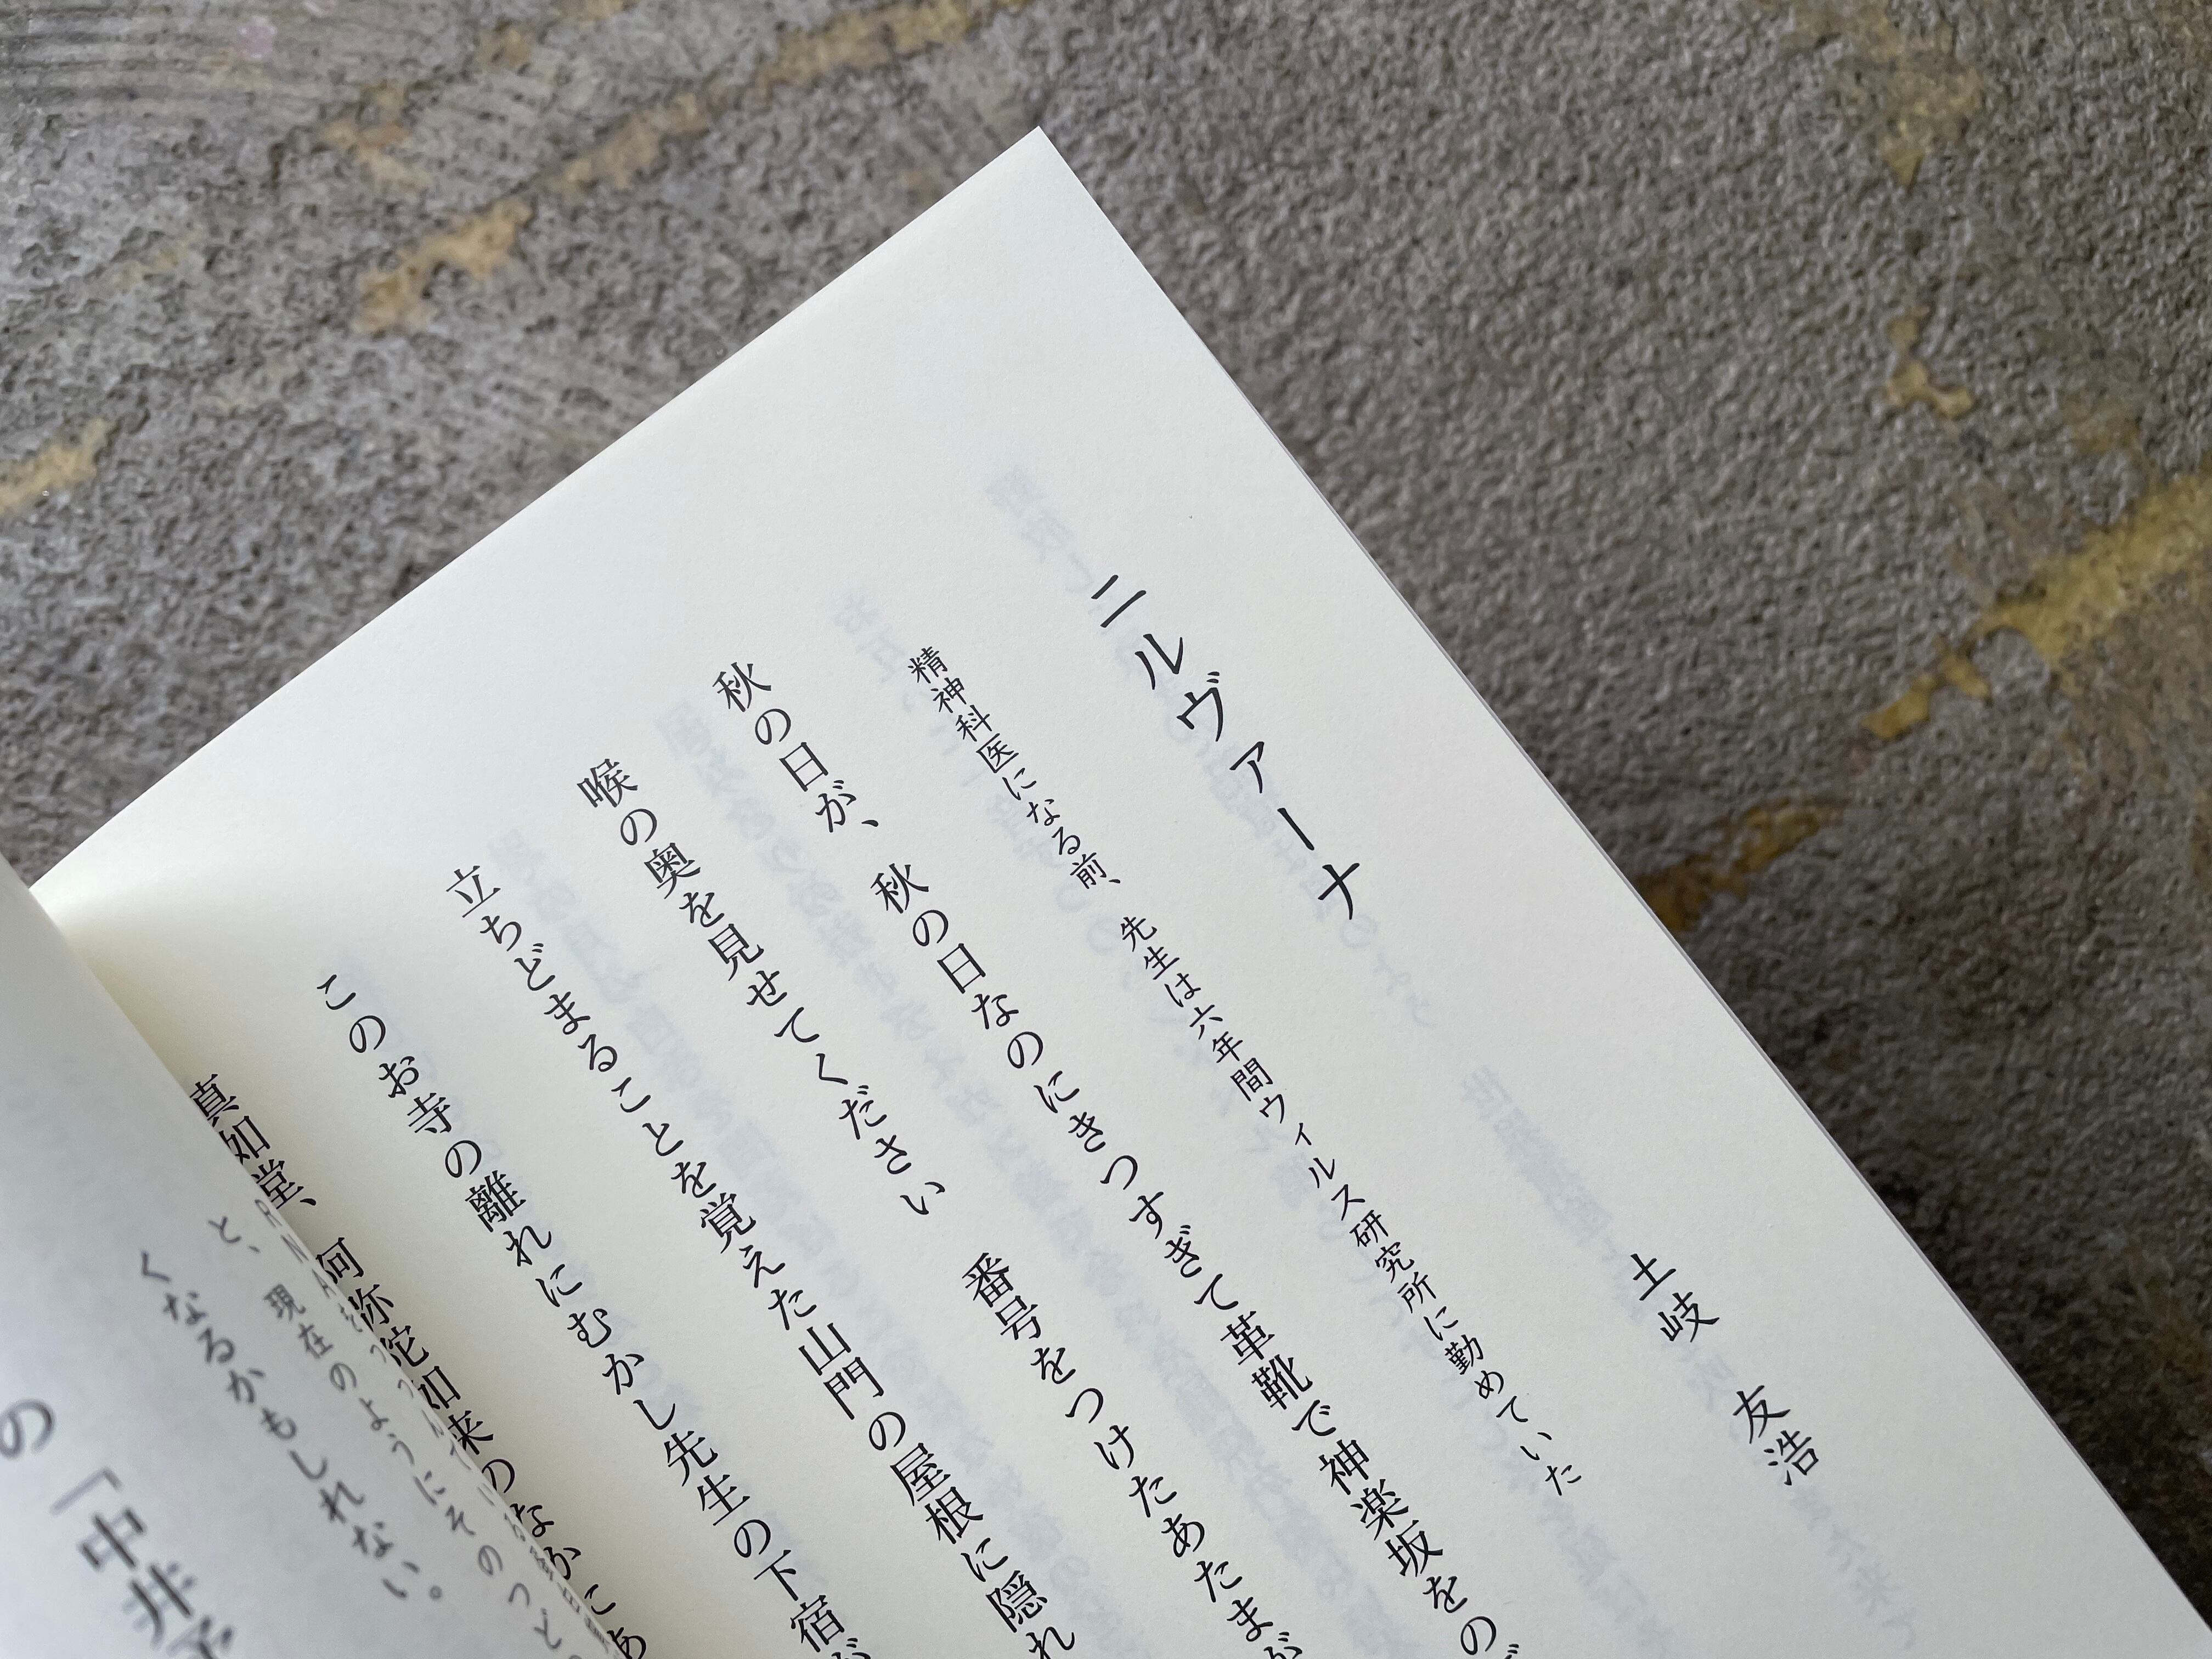 ニルヴァーナ
土岐 友浩
精神科医になる前、先生は六年間ウィルス研究所に勤めていた
秋の日が、秋の日なのにきつすぎて革靴で神楽坂をの
喉の奥を見せてください 番号をつけたあたまが
立ちどまることを覚えた山門の屋根に隠れ
このお寺の離れにむかし先生の下宿が
真如堂、阿弥陀如来のなかにあ
と、現在のようにそのつど
くなるかもしれない。
の「中井